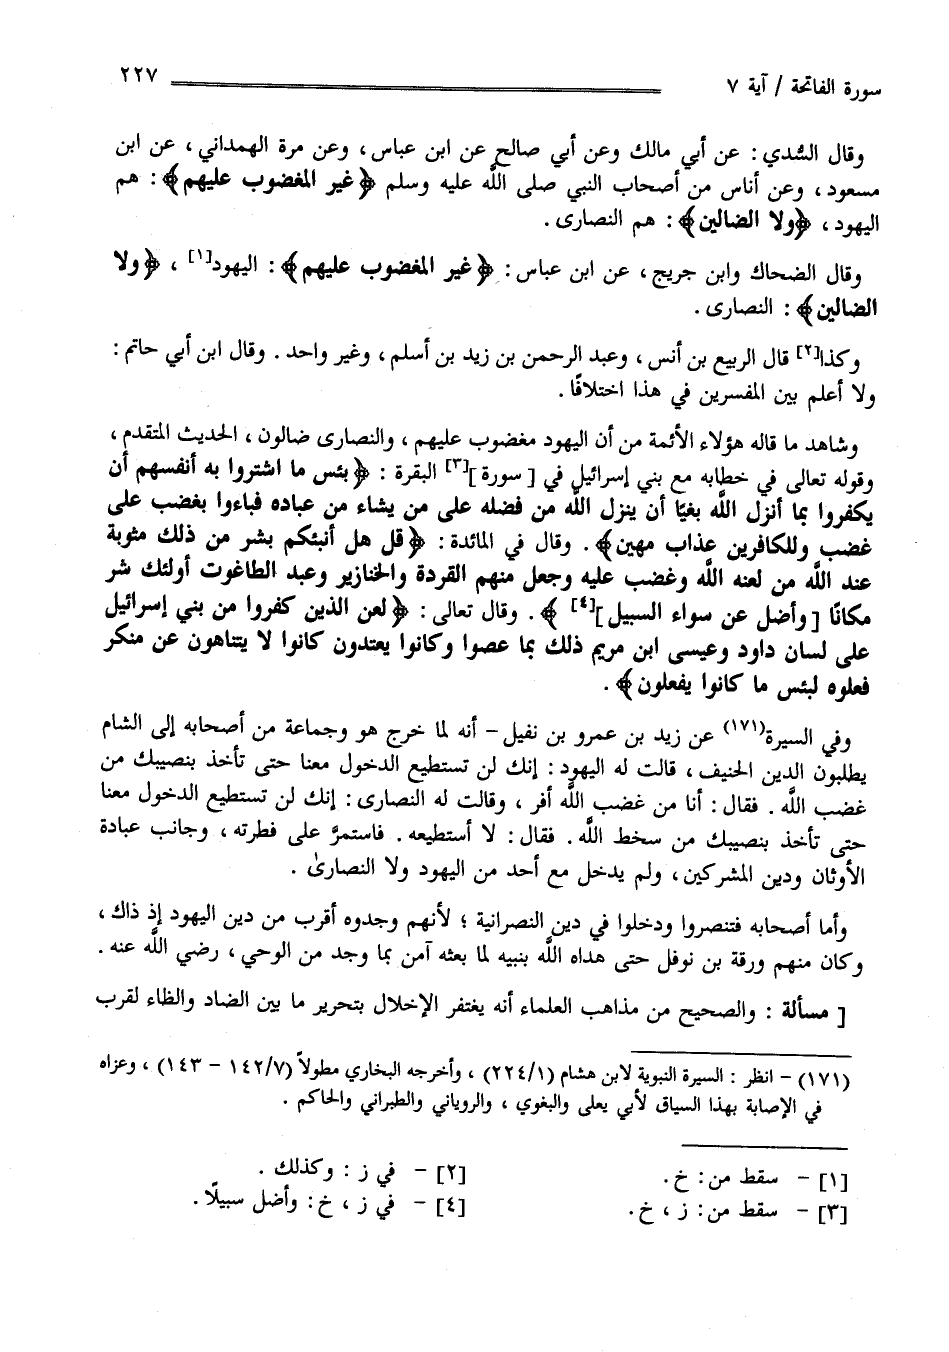 سورة الفاتحة / آية ٧ ٢٢٧
وقال السُّدي : عن أبي مالك وعن أبي صالح عن ابن عباس ، وعن مرة الهمداني ، عن ابن
مسعود ، وعن أناس من أصحاب النبي صلى اللَّه عليه وسلم ﴿غير المغضوب عليهم﴾ : هم
اليهود ، ﴿ولا الضالين﴾ : هم النصارى .
وقال الضحاك وابن جريج ، عن ابن عباس : ﴿غير المغضوب عليهم﴾ : اليهود[١] ، ﴿ولا
الضالين﴾ : النصارى .
وكذا[٢] قال الربيع بن أنس ، وعبد الرحمن بن زيد بن أسلم ، وغير واحد . وقال ابن أبي حاتم :
ولا أعلم بين المفسرين في هذا اختلافًا .
وشاهد ما قاله هؤلاء الأئمة من أن اليهود مغضوب عليهم ، والنصارى ضالون ، الحديث المتقدم ،
وقوله تعالى في خطابه مع بني إسرائيل في [ سورة ][٣] البقرة : ﴿بئس ما اشتروا به أنفسهم أن
يكفروا بما أنزل اللَّه بغيًا أن ينزل اللَّه من فضله على من يشاء من عباده فباءوا بغضب على
غضب وللكافرين عذاب مهين﴾ . وقال في المائدة : ﴿قل هل أنبئكم بشر من ذلك مثوبة
عند اللَّه من لعنه اللَّه وغضب عليه وجعل منهم القردة والخنازير وعبد الطاغوت أولئك شر
مكانًا [ وأضل عن سواء السبيل ][٤] ﴾ . وقال تعالى : ﴿لعن الذين كفروا من بني إسرائيل
على لسان داود وعيسى ابن مريم ذلك بما عصوا وكانوا يعتدون كانوا لا يتناهون عن منكر
فعلوه لبئس ما كانوا يفعلون﴾ .
وفي السيرة(١٧١) عن زيد بن عمرو بن نفيل – أنه لما خرج هو وجماعة من أصحابه إلى الشام
يطلبون الدين الحنيف ، قالت له اليهود : إنك لن تستطيع الدخول معنا حتى تأخذ بنصيبك من
غضب اللَّه . فقال : أنا من غضب اللَّه أفر ، وقالت له النصارى : إنك لن تستطيع الدخول معنا
حتى تأخذ بنصيبك من سخط اللَّه . فقال : لا أستطيعه . فاستمرَّ على فطرته ، وجانب عبادة
الأوثان ودين المشركين ، ولم يدخل مع أحد من اليهود ولا النصارىٰ .
وأما أصحابه فتنصروا ودخلوا في دين النصرانية ؛ لأنهم وجدوه أقرب من دين اليهود إذ ذاك ،
وكان منهم ورقة بن نوفل حتى هداه اللَّه بنبيه لما بعثه آمن بما وجد من الوحي ، رضي اللَّه عنه .
[ مسألة : والصحيح من مذاهب العلماء أنه يغتفر الإخلال بتحرير ما بين الضاد والظاء لقرب
(١٧١) – انظر : السيرة النبوية لابن هشام (٢٢٤/١) ، وأخرجه البخاري مطولاً (١٤٢/٧ – ١٤٣) ، وعزاه
في الإصابة بهذا السياق لأبي يعلى والبغوي ، والروياني والطبراني والحاكم .
[١] – سقط من : خ . [٢] – في ز : وكذلك .
[٣] – سقط من : ز ، خ . [٤] – في ز ، خ : وأضل سبيلًا .